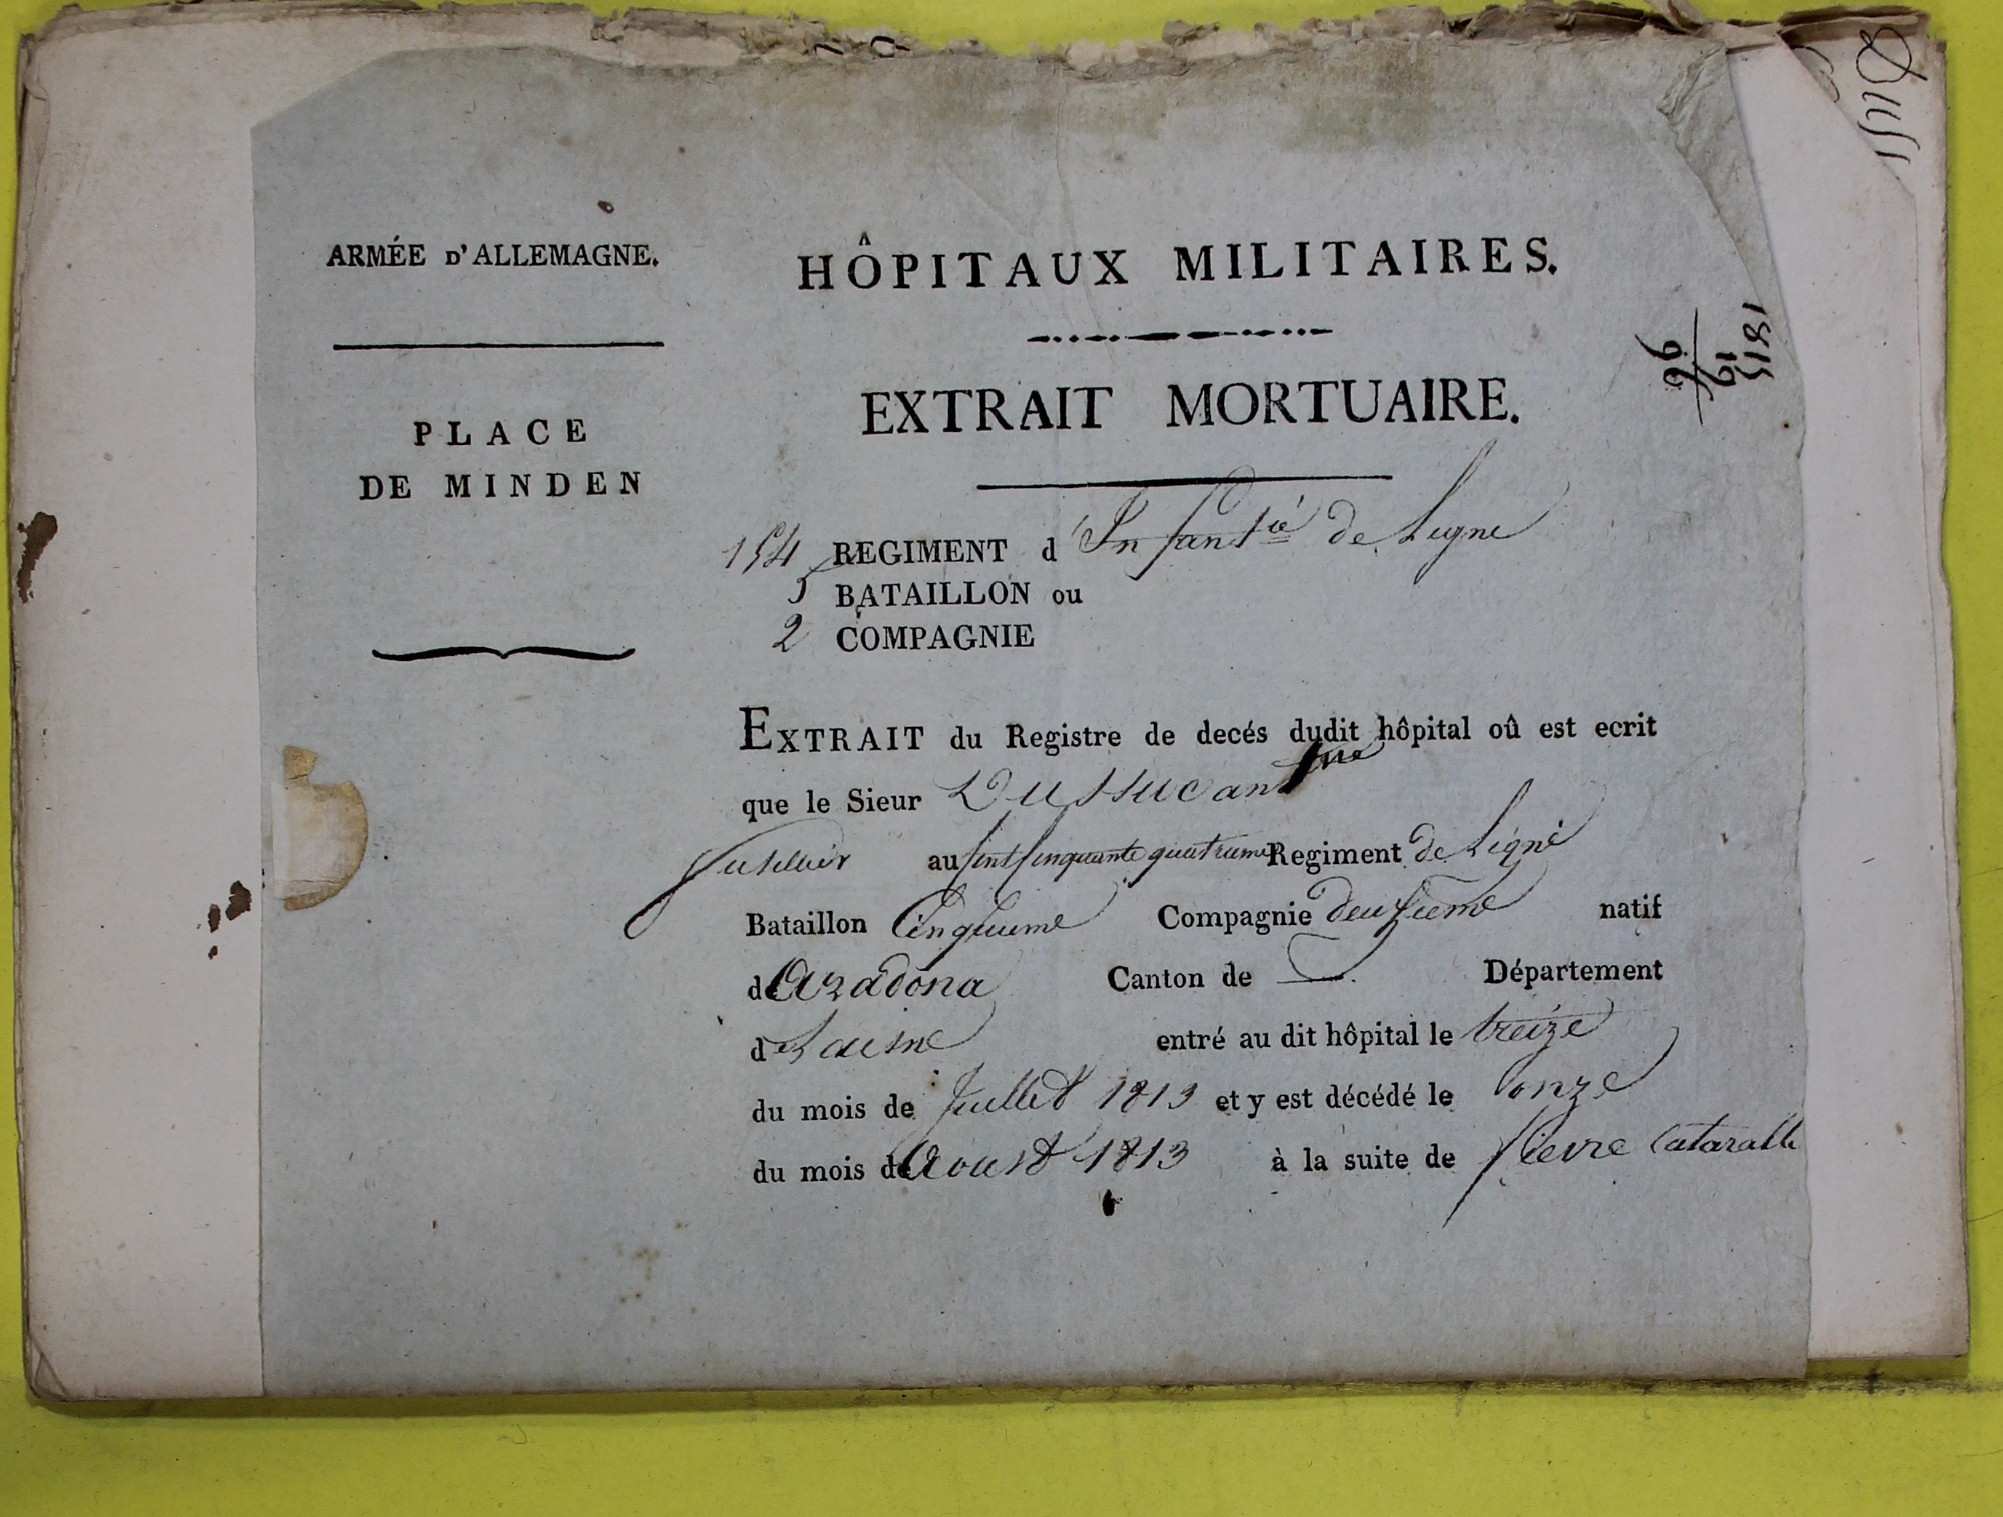 Duss
ARMÉE D'ALLEMAGNE.
PLACE
DE MINDEN
HÔPITAUX MILITAIRES.
EXTRAIT MORTUAIRE.
1815
19
96
154 REGIMENT d'Infantie de Ligne
5 BATAILLON ou
2 COMPAGNIE
EXTRAIT du Registre de decés dudit hôpital où est ecrit
que le Sieur Dussucan
fusillier au sent sinquante quatrieme Regiment de Ligne
Bataillon Cinquieme Compagnie deuxieme natif
de Azadona Canton de — Département
de Laisne entré au dit hôpital le treize
du mois de Juillet 1813 et y est décédé le onze
du mois de Aoust 1813 à la suite de fievre Cataralle